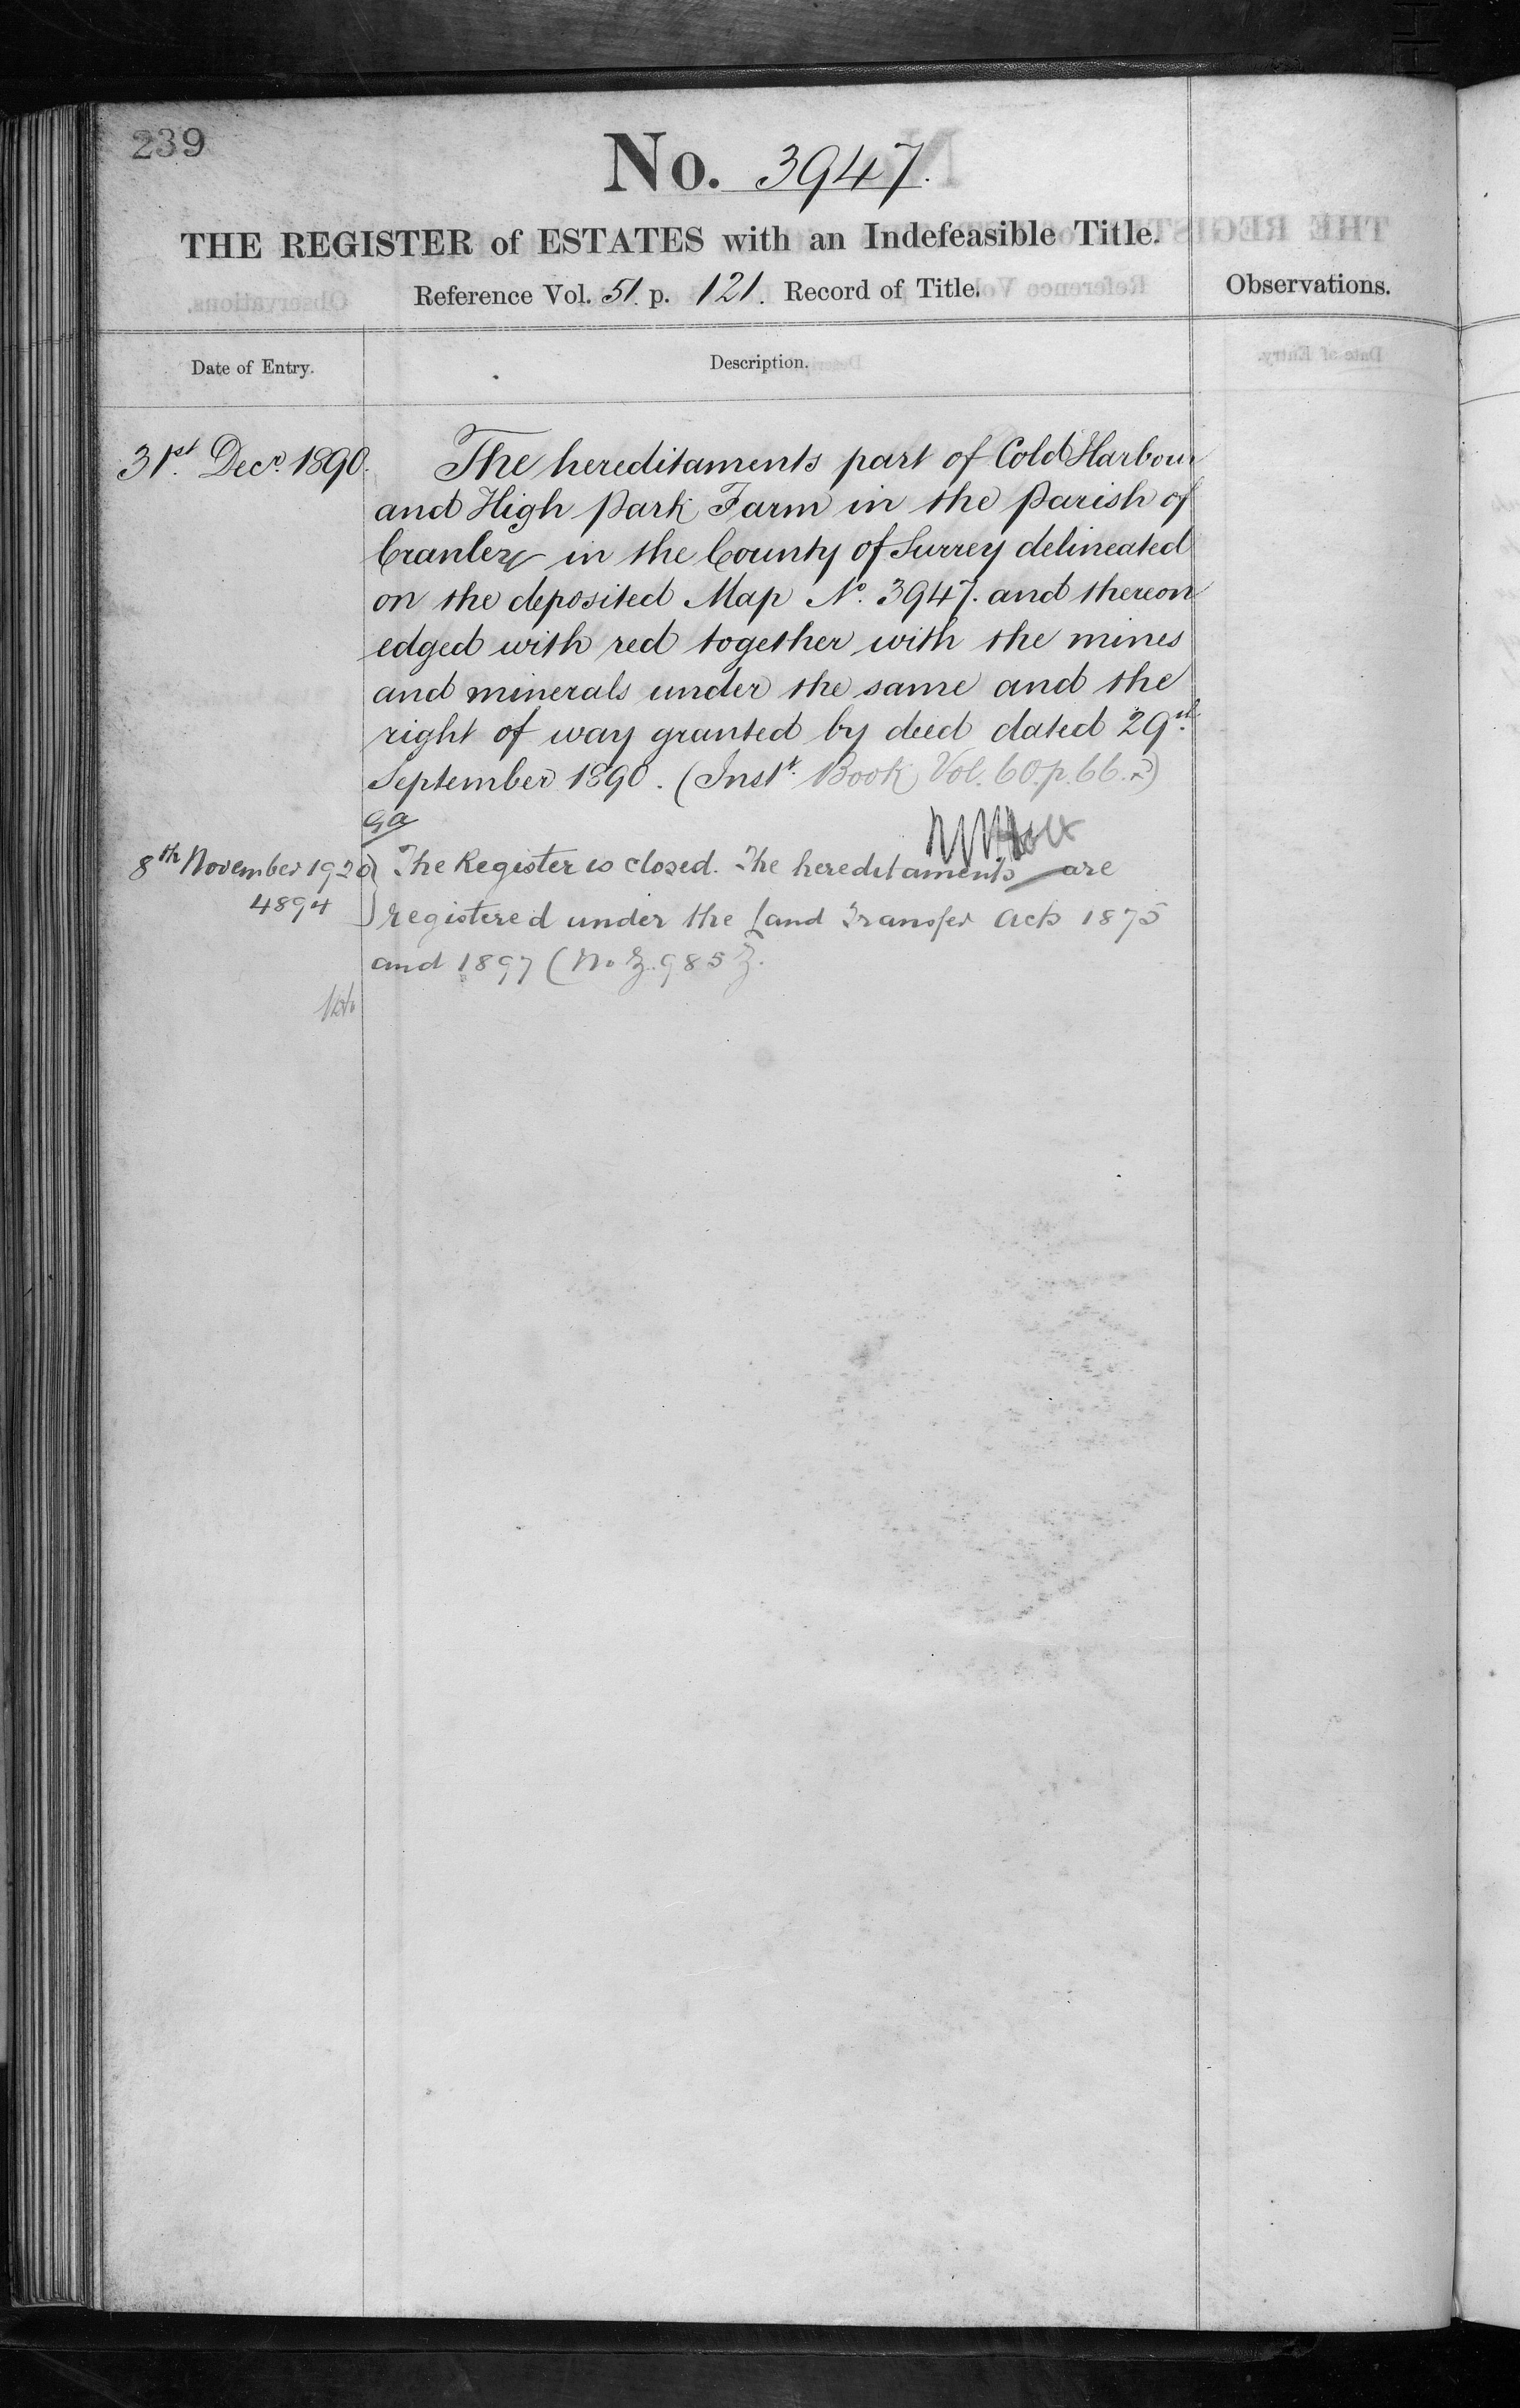 239
No. 3947.
THE REGISTER of ESTATES with an Indefeasible Title.
Reference Vol. 51. p. 121. Record of Title.
Observations.
Date of Entry.
Description.
31st. Decr. 1890.
The hereditaments part of Cold Harbour
and High Park Farm in the Parish of
Cranley in the County of Surrey delineated
on the deposited Map No. 3947. and thereon
edged with red together with the mines
and minerals under the same and the
right of way granted by deed dated 29th.
September 1890. (Inst. Book Vol. 60. p. 66.)
8th November 1920
4894
The Register is closed. The hereditaments are
registered under the Land Transfer Acts 1875
and 1897 (No Z. 985 Z.